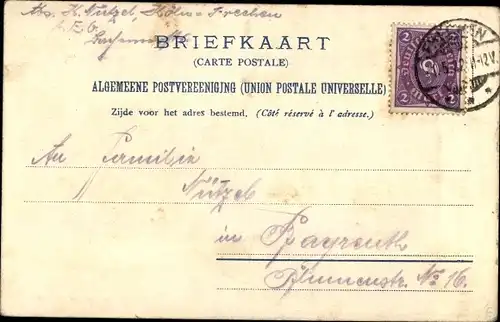 Abs. K. Nützel, Köln-Frechen
BRIEFKAART
(CARTE POSTALE)
ALGEMEENE POSTVEREENIGING (UNION POSTALE UNIVERSELLE)
Zijde voor het adres bestemd. (Côté réservé à l'adresse.)
2 2
2 2
An Familie
Nützel
in Bayreuth
Blumenstr. No 16.